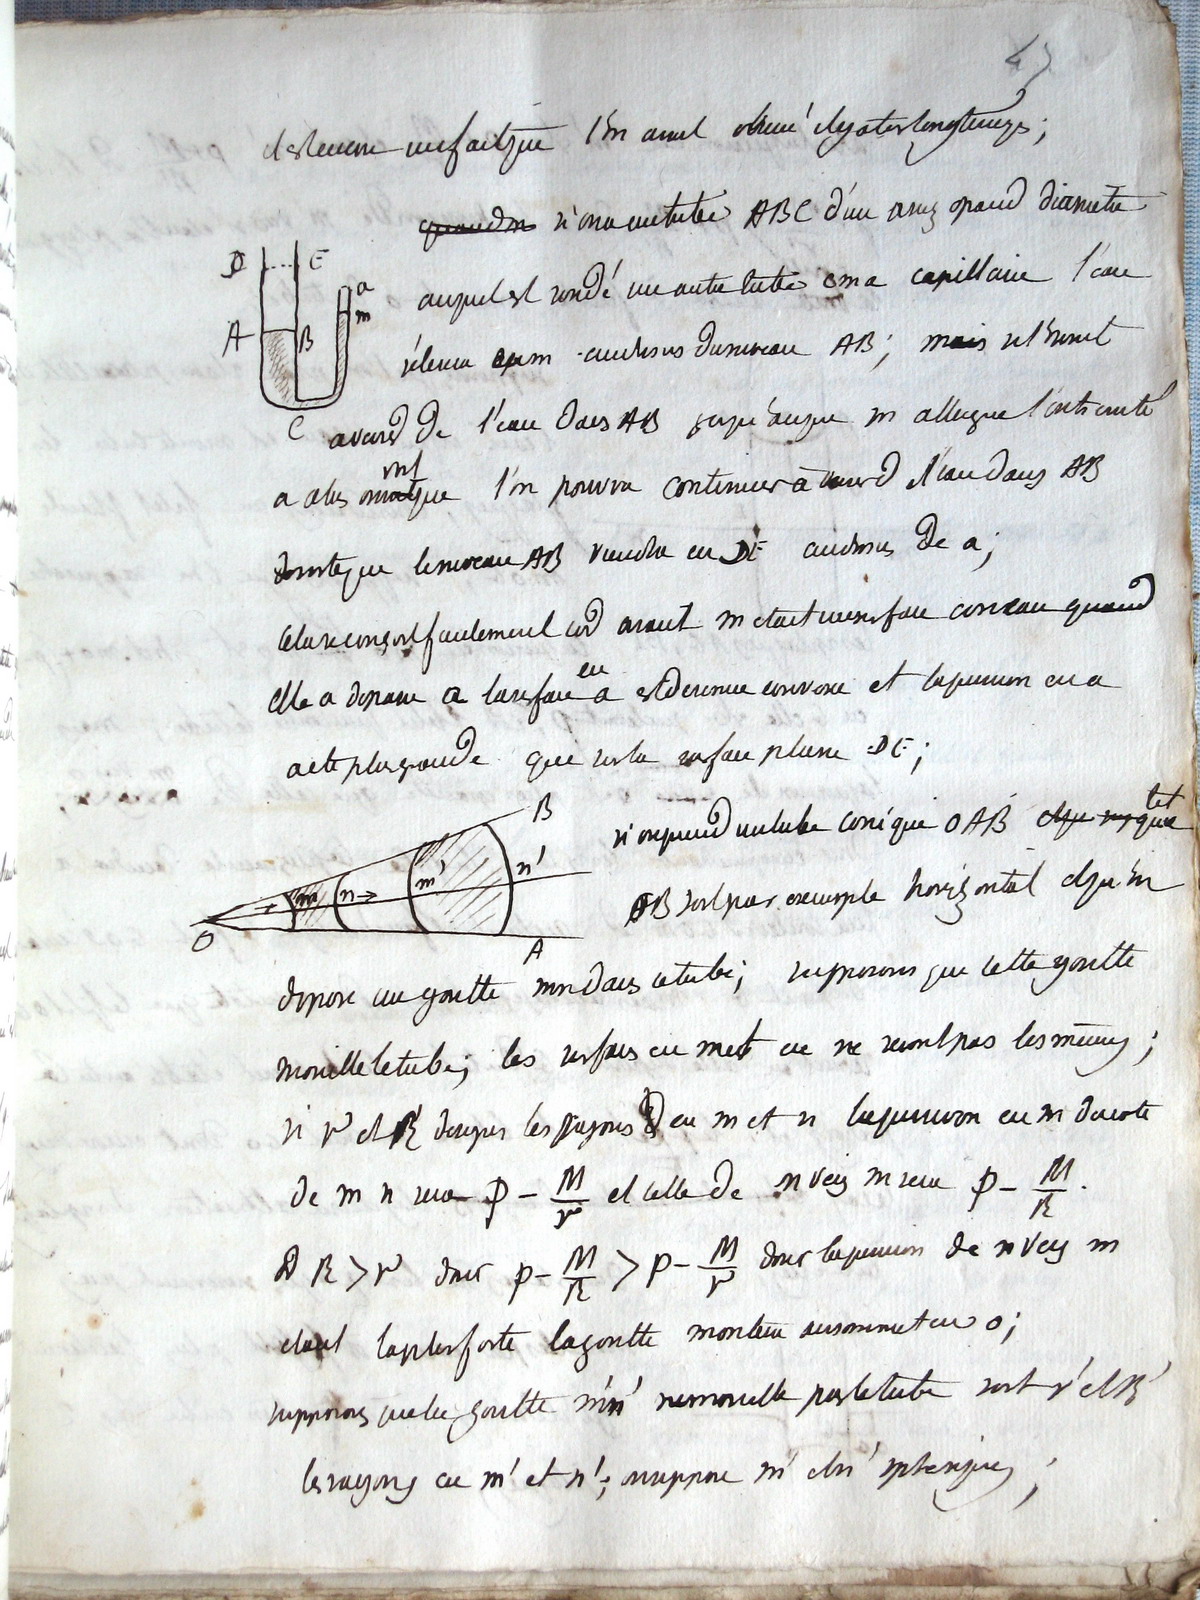 45
c'est encore un fait que l'on avait observé il y a très longtems;
quand on si on a un tube ABC d'un assez grand diametre
auquel est soudé un autre tube cma capillaire l'eau
s'elevera en m au dessus du niveau AB; mais si l'on met
de l'eau dans AB jusqu'à ce que m atteigne l'extremité
a alors on voit que l'on pourra continuer à verser de l'eau dans AB
de sorte que le niveau AB viendra en DE au dessus de a;
cela se conçoit facilement car avant m etait une surface concave quand
elle a depassé a la surface en a est devenue convexe et la pression en a
a eté plus grande que sur la surface plane DE;
D E a m A B C
si on prend un tube conique OAB tel que
OB soit par exemple horizontal et qu'on
B m n m' n' O A
depose une goutte mn dans ce tube; supposons que cette goutte
mouille le tube; les surfaces en m et en n ne seront pas les mêmes;
si r et R designe les rayons en m et n la pression en m du coté
de m n sera p - M/r et celle de n vers m sera p - M/R.
R > r donc p - M/R > p - M/r donc la pression de n vers m
etant la plus forte la goutte montera au sommet en o;
supposons que la goutte m'n' ne mouille pas le tube soit r' et R'
les rayons en m' et n'; on suppose m' et n' spheriques;